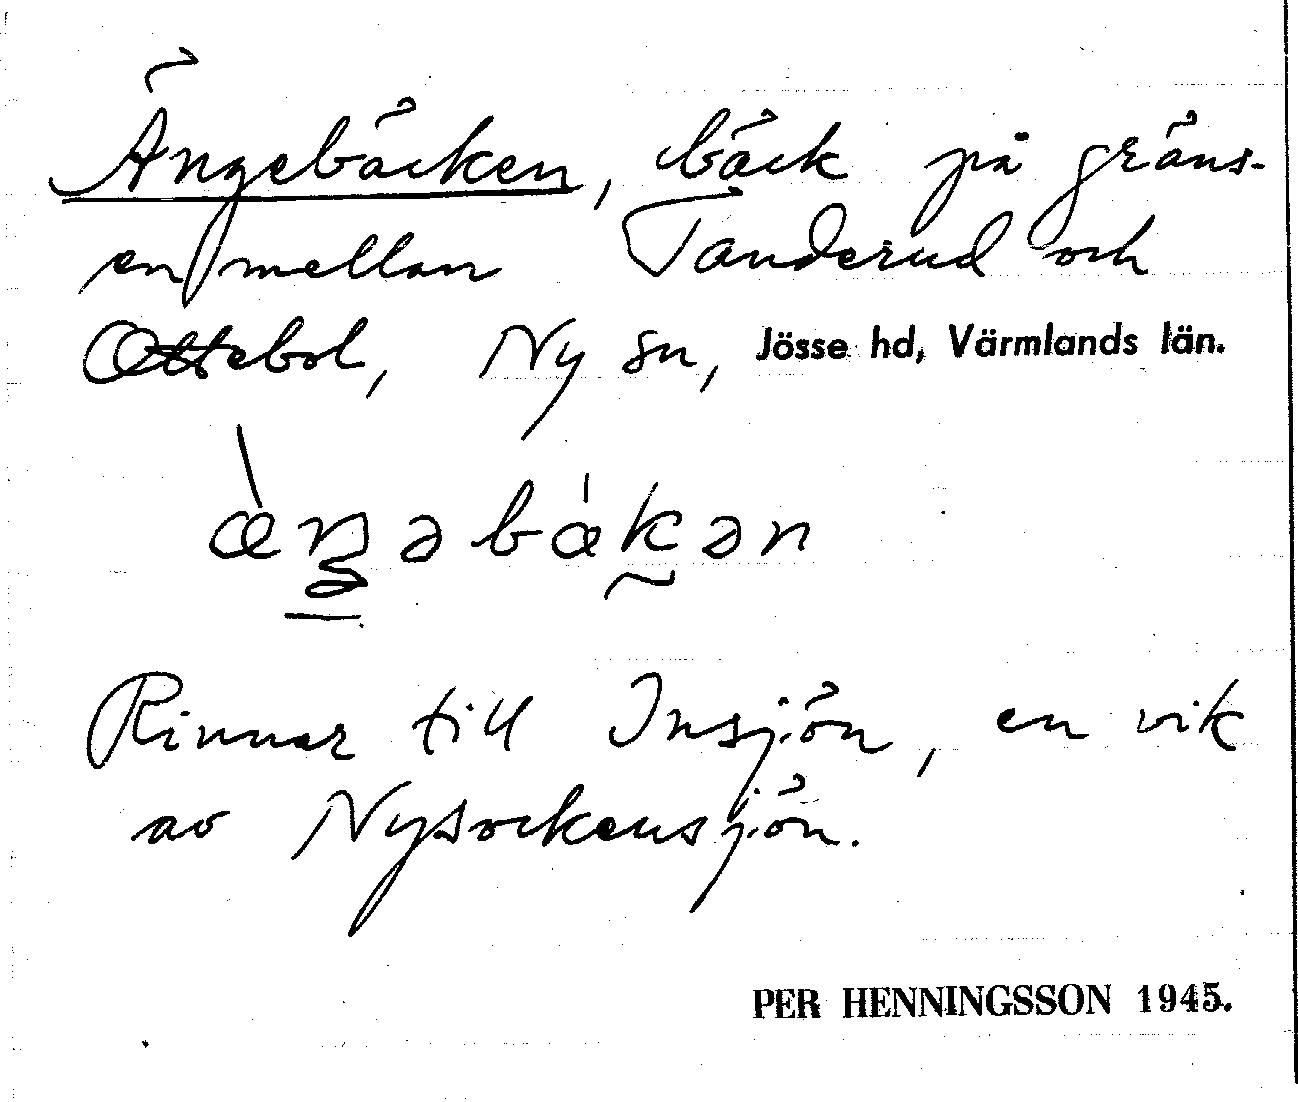 Ängebäcken, bäck på gräns-
en mellan Tanderud och
Ottebol, Ny sn, Jösse hd, Värmlands län.
æ̀ŋəbákən
Rinner till Insjön, en vik
av Nysockensjön.
PER HENNINGSSON 1945.